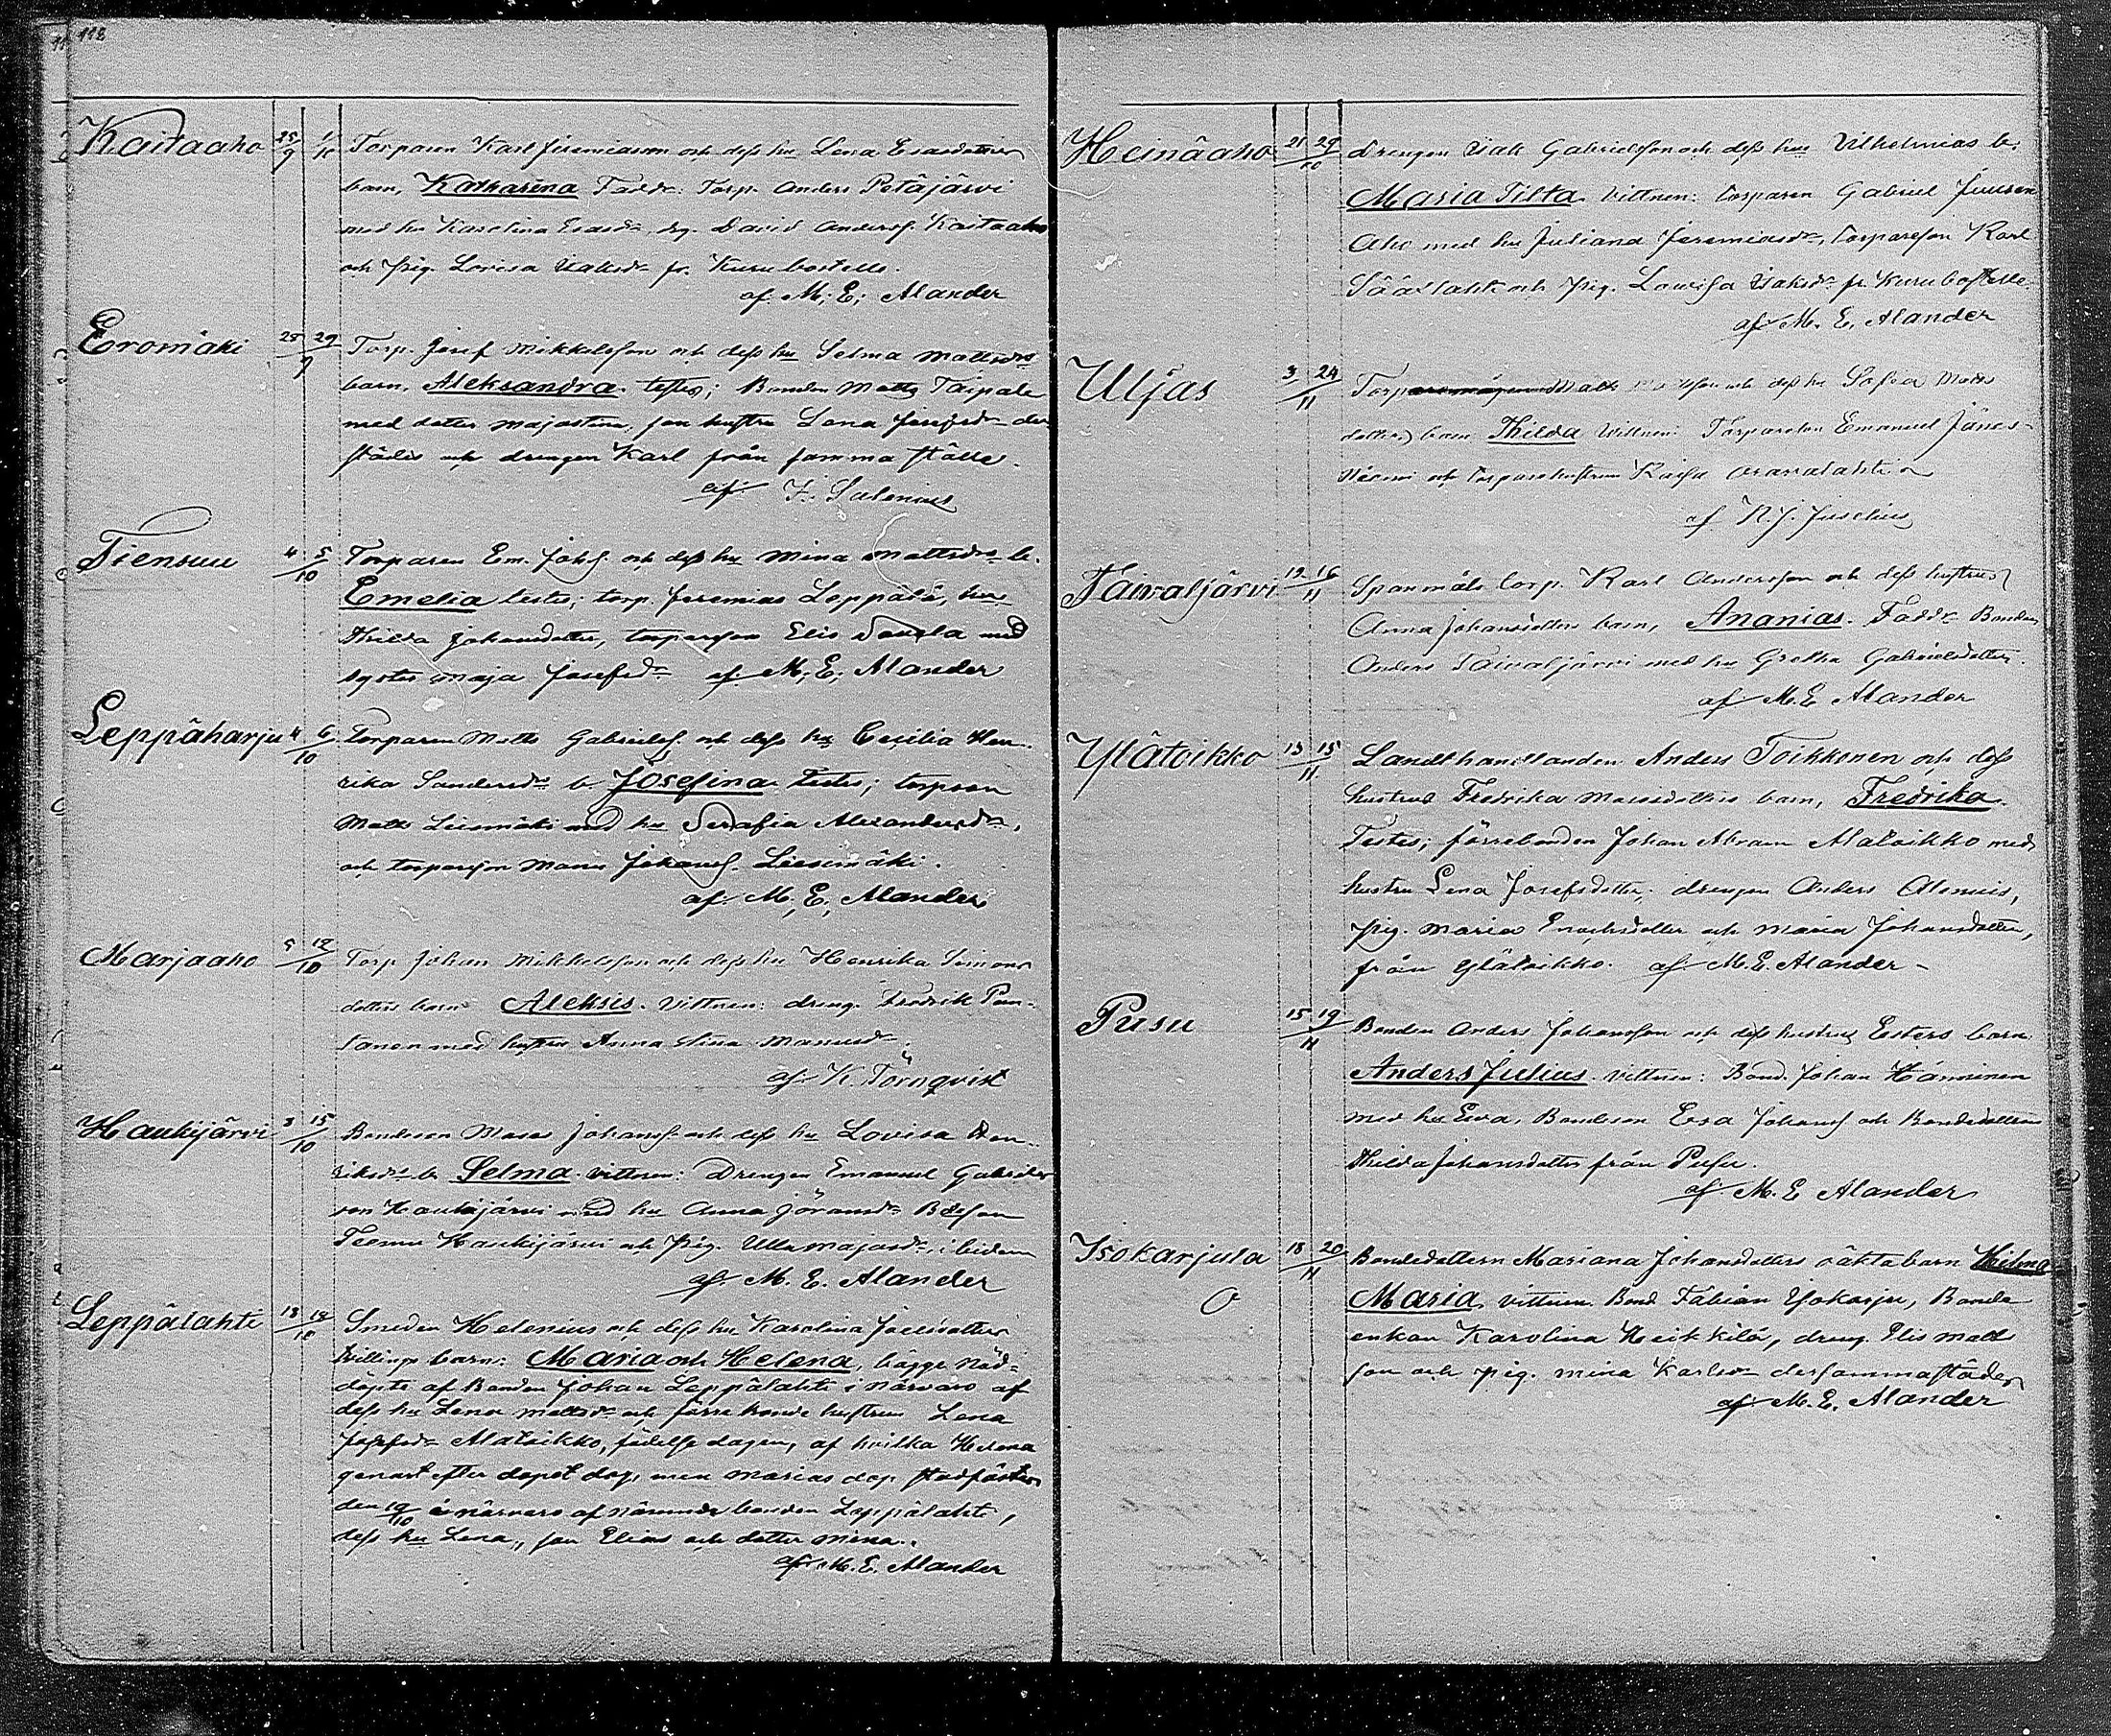 118
Kaitaaho 25/9 1/10 Torparen Karl Jeremiasson och dess hu Lena Esasdotters
barn, Katharina Faddr: Torp. Anders Petäjärvi
med hu Karolina Esasdr, drg. David Andersf. Kaitaaho
och pig. Lovisa Isaksdr fr. Kuru bostelle.
af M. E. Alander
Eromäki 25 29/9 Torp. Josef Mikkelsson och dess hu Selma Mattsdrs
barn, Aleksandra. testes; Bonden Matts Taipale
med dotter Majastina, son hustru Lena Josefsdr der
städes och drengen Karl från samma ställe.
af F. Salenius
Tiensuu 4 5/10 Torparen Em. Johs. och dess hu Mina Mattsdrs b.
Emelia testes; torp. Jeremias Leppälä, hu
Thilda Johansdotter, torparson Elis
syster Maja Josefsdr af M. E. Alander
Leppäharju 4 6/10 Torparen Matts Gabrielsf. och dess hu Cecilia Hen-
rika Sandersdr b. Josefina Testes; torparen
Matts Liesmäki med hu Serafia Alexandersdr,
och torparson Manu Johansf. Liesemäki.
af M. E. Alander
Marjaaho 5 12/10 Torp Johan Mikkelsson och dess hu Henrika Simons
dotters barn Aleksis. Vittnen: dreng. Fredrik Pun-
tanen med hustru Anna Stina Manusdr.
af K Törnqvist
Haukijärvi 8 15/10 Bondeson Moses Johansf. och dess hu Lovisa Hen-
riksdrs b. Selma. vittnen: Drengen Emanuel Gabriels
son Haukijärvi med hu Anna Jöransdr Bdeson
Teemu Haukijärvi och Pig. Ulla Majasdr, i
af M. E. Alander
Leppälahti 18 19/10 Smeden Helenius och dess hu Karolina Joelsdotters
tvillings barn: Maria och Helena, bägge nöd-
döpte af Bonden Johan Leppälahti i närvaro af
dess hu Lena Mattsdr och förre bonde hustrun Lena
Josefsdr Alatoikko, födelse dagen, af hvilka Helena
genast efter dopet dog, men Marias dop stadfästes
den 19/10 i närvaro af nämnde bonden Leppälahti,
dess hu Lena, son Elias och dotter Mina.
af M. E. Alander
Heinäaho 21 29/10 Drengen Isak Gabrielsson och dess hus Vilhelminas b.
Maria Tilta. Vittnen: torparen Gabriel Juusen
Aho med hu Juliana Jeremiasdr, torpareson Karl
Säärlahti och pig. Lovisa Isaksdr fr. Kuru bostelle.
af M. E. Alander
Uljas 3 24/11 Torp Matts och dess hu Sofia Matts
dotters barn Thilda Vittnen: Torpareson Emanuel Jänes-
niemi och torparehustrun Kaisa
af N. J. Juselius
Taivaljärvi 12 16/11 Spanmåls torp. Karl Andersson och dess hustrus
Anna Johansdotters barn, Ananias. Faddr Bonden
Anders Taivaljärvi med hu Gretha Gabrielsdotter.
af M. E Alander
Ylätoikko 13 15/11 Landthandlanden Anders Toikkonen och dess
hustrus Fredrika Maisdotters barn, Fredrika.
Testes; förrebonden Johan Abram Alatoikko med
hustru Lena Josefsdotter; drengen Anders Alenius,
pig. Maria Enochsdotter och Maria Johansdotter,
från Ylätoikko. af M. E. Alander
Pusu 15 19/11 Bonden Anders Johansson och dess hustrus Esters barn
Anders Julius. vittnen: Bond. Johan Hänninen
med hu Eva, Bondeson Esa Johansf och Bondedottern
Thilda Johansdotter från Pusu.
af M. E Alander
Isokarjula 18 20/11 Bondedottern Mariana Johansdotters oäkta barn Hilma
O Maria, vittnen. Bond Fabian Isokarju, Bonde
enkan Karolina Heikkilä, dreng. Elis Matts
son och pig. Mina Karlsdr dersammastädes
af M. E. Alander